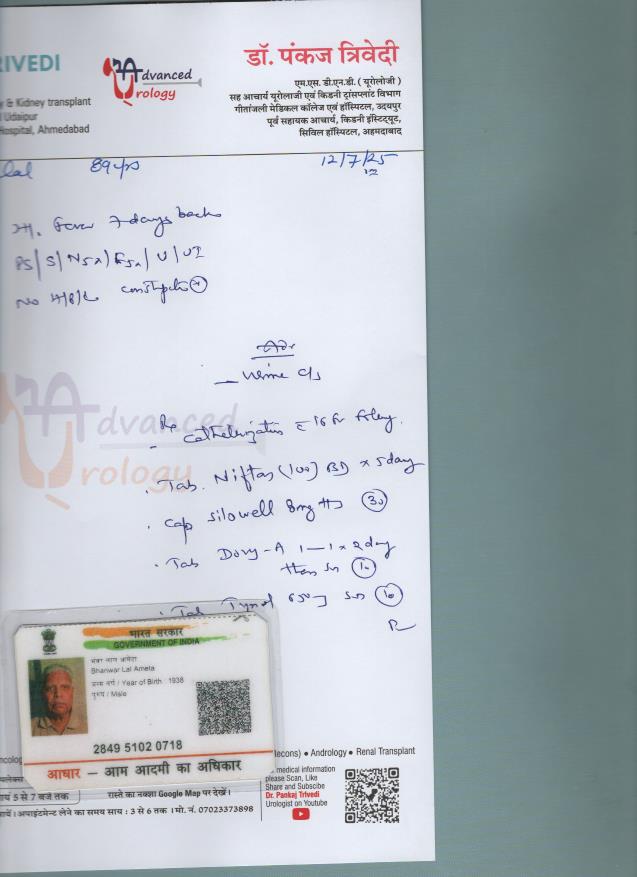 RIVEDI
Advanced
Urology
डॉ. पंकज त्रिवेदी
एम.एस. डी.एन.बी. ( यूरोलोजी )
y & Kidney transplant
सह आचार्य यूरोलाजी एवं किडनी ट्रांसप्लांट विभाग
Udaipur
गीतांजली मेडिकल कॉलेज एवं हॉस्पिटल, उदयपुर
Hospital, Ahmedabad
पूर्व सहायक आचार्य, किडनी इंस्टिट्यूट,
सिविल हॉस्पिटल, अहमदाबाद
lal 89 12/7/25
Fever 7 days back
No
Urine c/s
Re catheterization c 16 Fr Foley.
Tab. Niftas (100) BD x 5 day
Cap Silowell 8mg HS 30
Tab 1-1 x 2 day
then 10
Tab 650 10
Advanced
Urology
भारत सरकार
GOVERNMENT OF INDIA
भंवर लाल आमेटा
Bhanwar Lal Ameta
जन्म वर्ष / Year of Birth : 1938
पुरुष / Male
2849 5102 0718
आधार – आम आदमी का अधिकार
lecons) • Andrology • Renal Transplant
medical information
please Scan, Like
Share and Subscibe
Dr. Pankaj Trivedi
Urologist on Youtube
5 से 7 बजे तक
रास्ते का नक्शा Google Map पर देखें।
अपाइंटमेन्ट लेने का समय साय : 3 से 6 तक । मो. नं. 07023373898